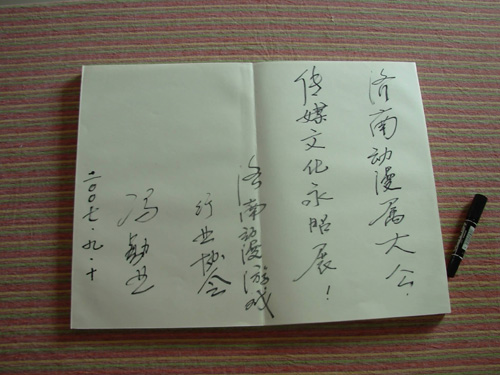 济南动漫属大众.
传媒文化永昭展！
济南动漫游戏
行业协会
冯勤业
二〇〇七.九.十